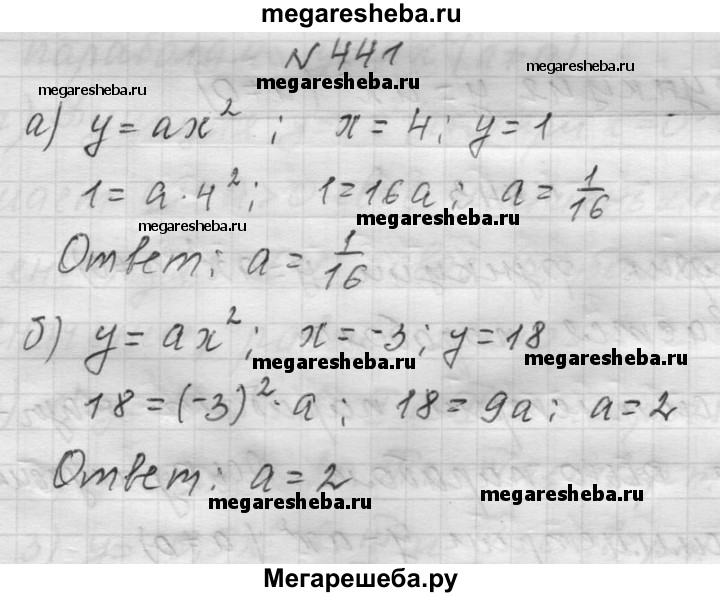 megaresheba.ru
N 441
megaresheba.ru megaresheba.ru megaresheba.ru
а) y = ax²; x = 4; y = 1
1 = a · 4²; 1 = 16a; a = 1/16
megaresheba.ru megaresheba.ru
Ответ: a = 1/16
б) y = ax²; x = -3; y = 18
megaresheba.ru megaresheba.ru
18 = (-3)² · a; 18 = 9a; a = 2
Ответ: a = 2
megaresheba.ru megaresheba.ru
Мегарешеба.ру